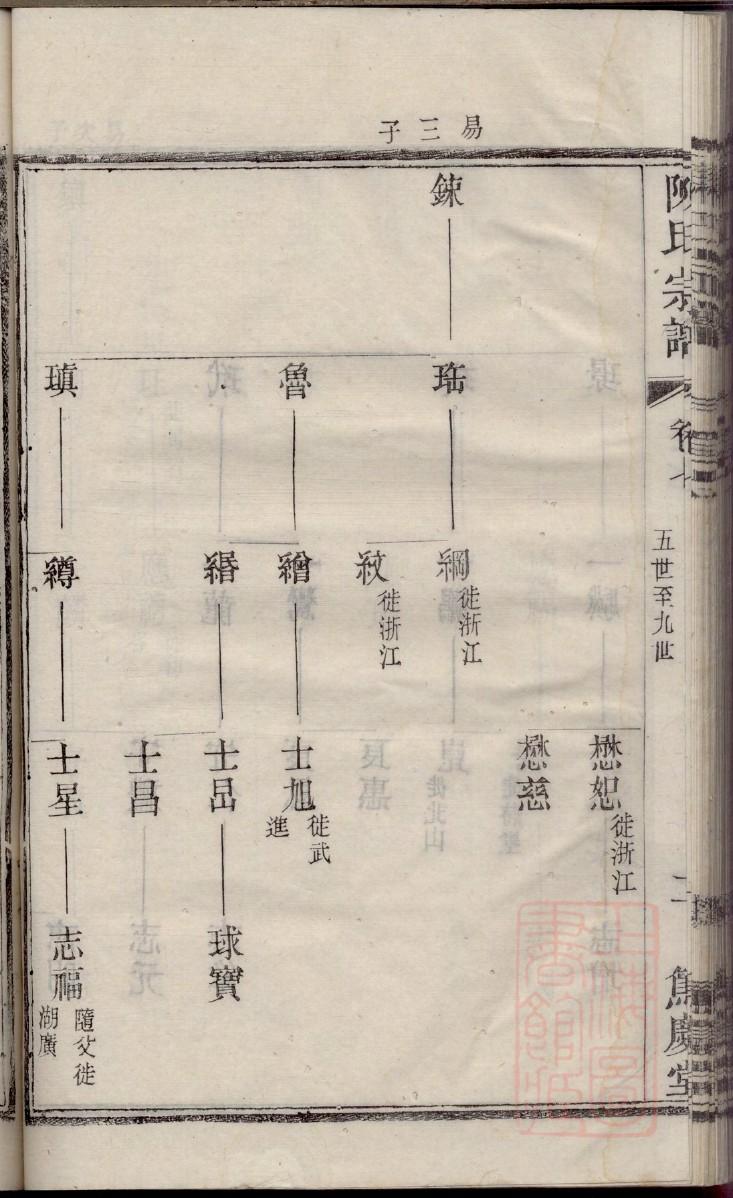 易三子
陳氏宗譜
卷
五世至九世
二
篤慶堂
鍊
珤
魯
瑱
綱 徙浙江
紋 徙浙江
繒
緡
縛
懋恕 徙浙江
懋慈
士旭 徙武進
士昂
士昌
士星
球寶
志福 隨父徙湖廣